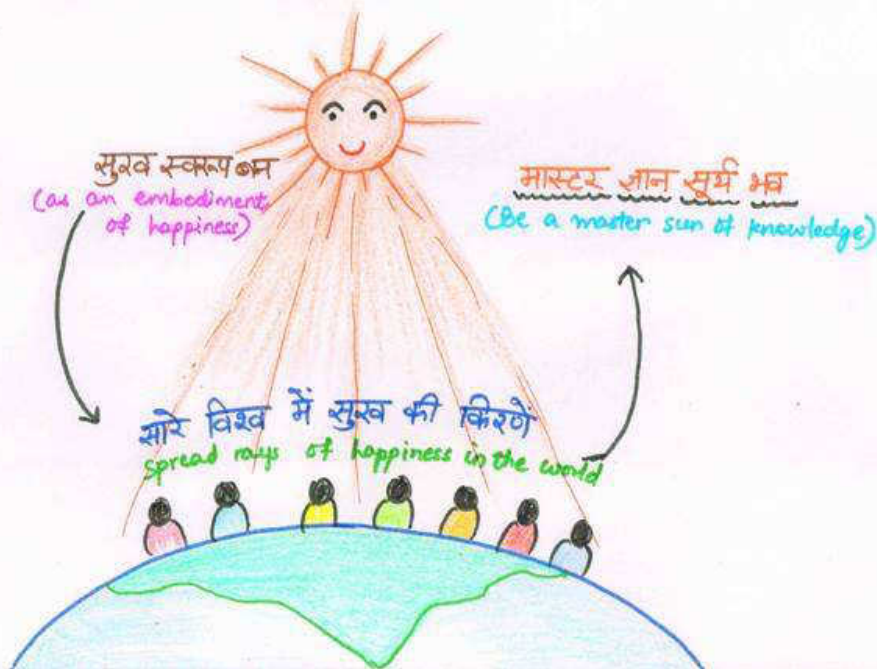 सुख स्वरूप बन
(as an embediment
of happiness)
मास्टर ज्ञान सूर्य भव
(Be a master sun of knowledge)
सारे विश्व में सुख की किरणें
spread rays of happiness in the world